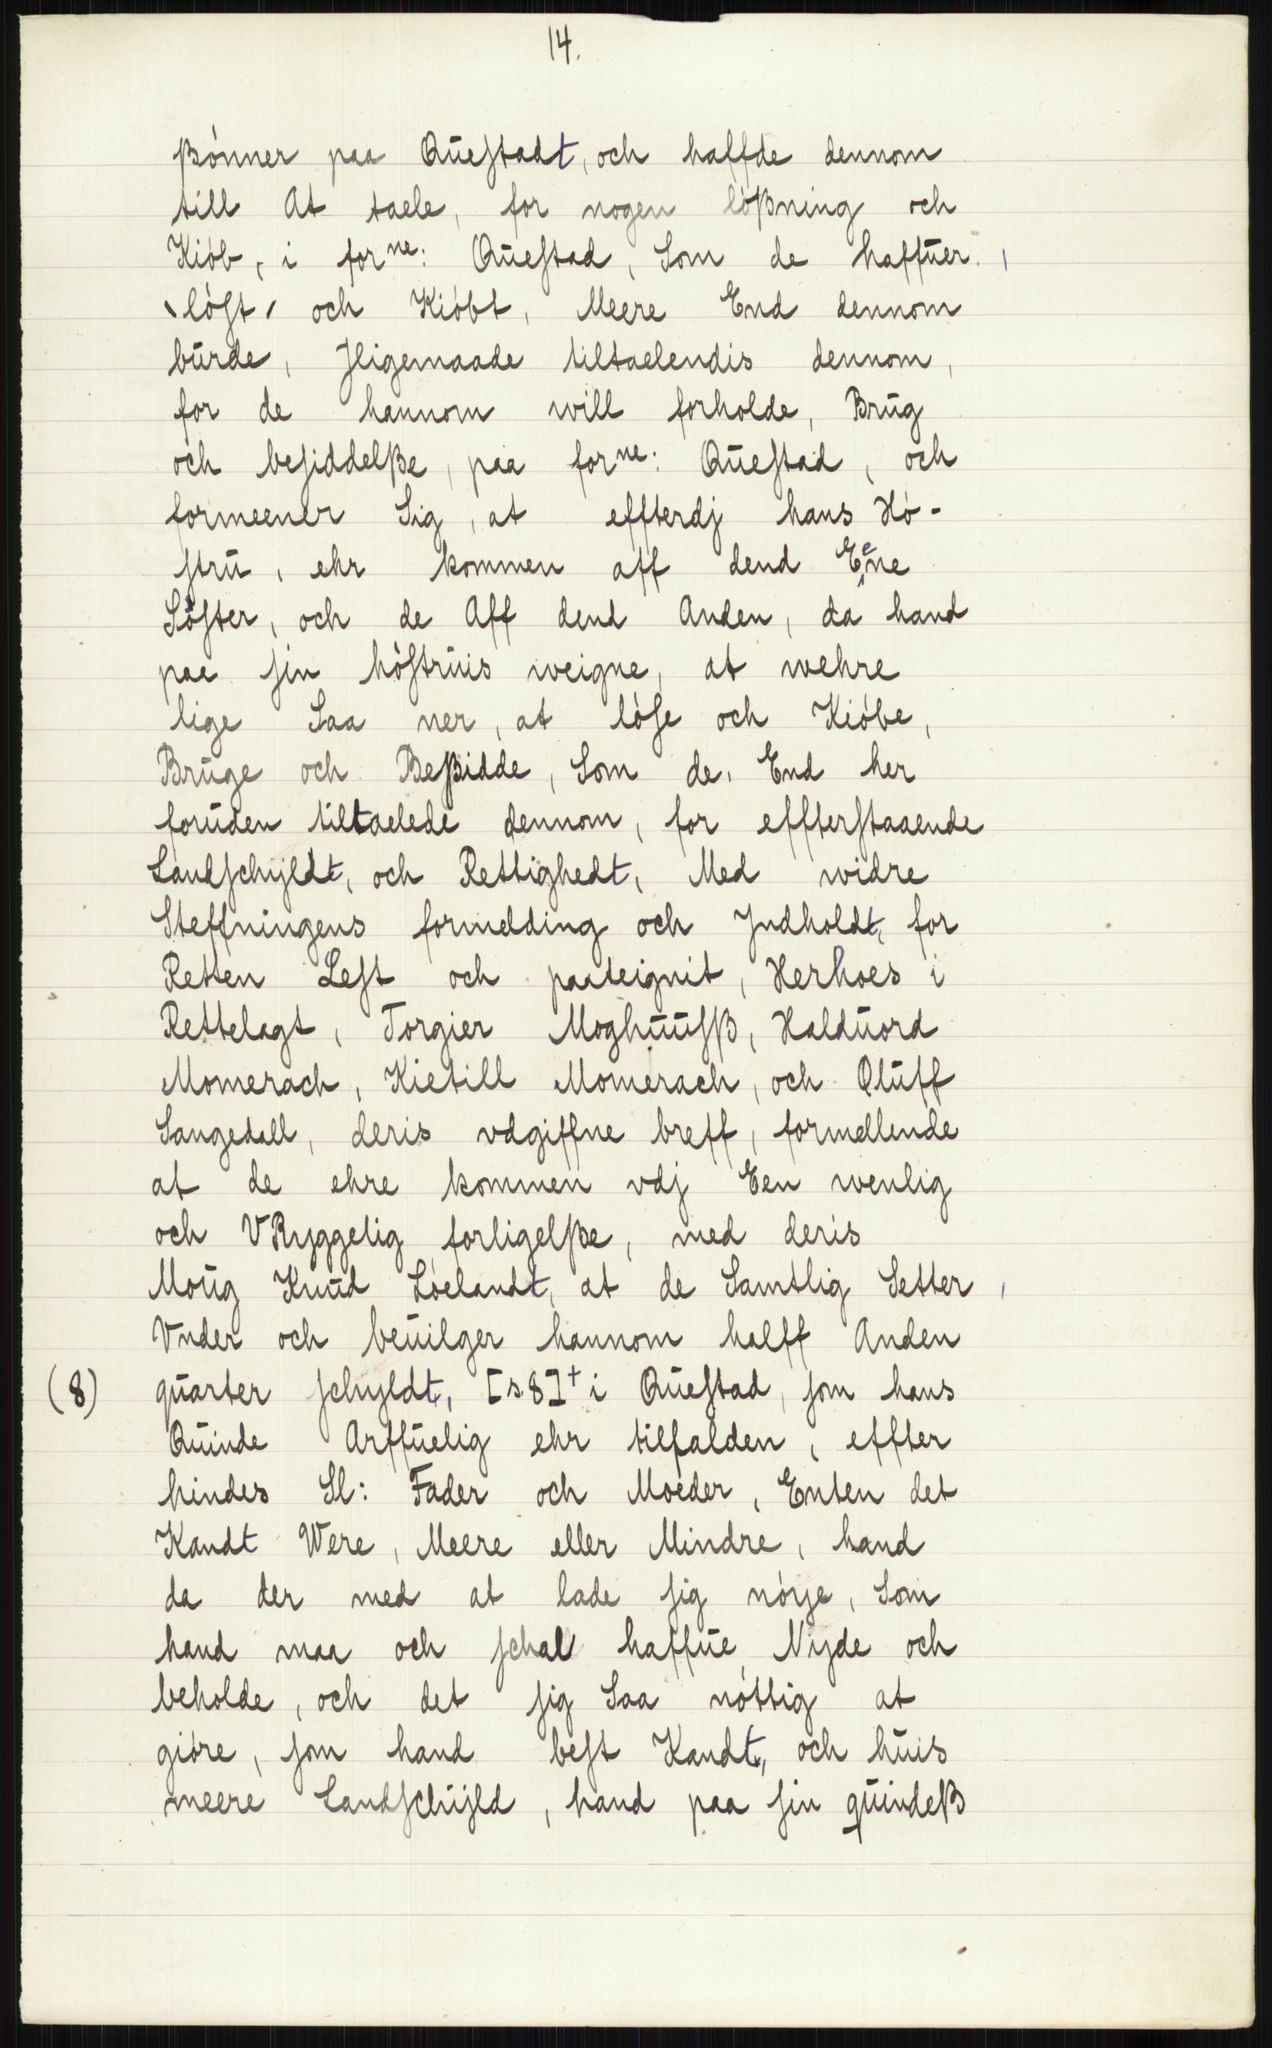 14.
ßónner paa Questadt, och haffde dennom
till At taele, for nogen lóßning och
Kiób, i forne: Questad, Som de haffuer
løst och Kióbt, Meere End dennom
burde, Jligemaade tiltaelendis dennom,
for de hannom will forholde, Brug
och besiddelße, paa forne: Questad, och
formeener Sig, at effterdj hans Hó-
stru, ehr kommen aff dend Eene
Sóster, och de Aff dend Anden, da hand
paa sin hóstruis weigne, at wehre
lige Saa ner, at lóse och Kióbe,
Bruge och Beßidde, Som de, End her
foruden tiltaelede dennom, for effterstaaende
Landschyldt, och Rettighedt, Med widre
Steffningens formelding och Jndholdt, for
Retten Lest och paateignit, Herhoes i
Rettelagt, Torgier Moghuusß, Halduord
Momerach, Kietill Momerach, och Oluff
Sangedall, deris vdgiffne breff, formellende
at de ehre kommen vdj Een wenlig
och VRyggelig forligelße, med deris
Moug Knud Lóelandt, at de Samtlig Setter
Vnder och beuilger hannom halff Anden
(8) quarter schyldt, [s 8]+ i Questad, som hans
Quinde Arffuelig ehr tilfalden, effter
hindes Sl: Fader och Moeder, Enten det
Kandt Were, Meere eller Mindre, hand
da der med at lade sig nóye, Som
hand maa och schal haffue Nyde och
beholde, och det sig Saa nóttig at
gióre, som hand best Kandt, och huis
meere Landschyld, hand paa sin quindeß